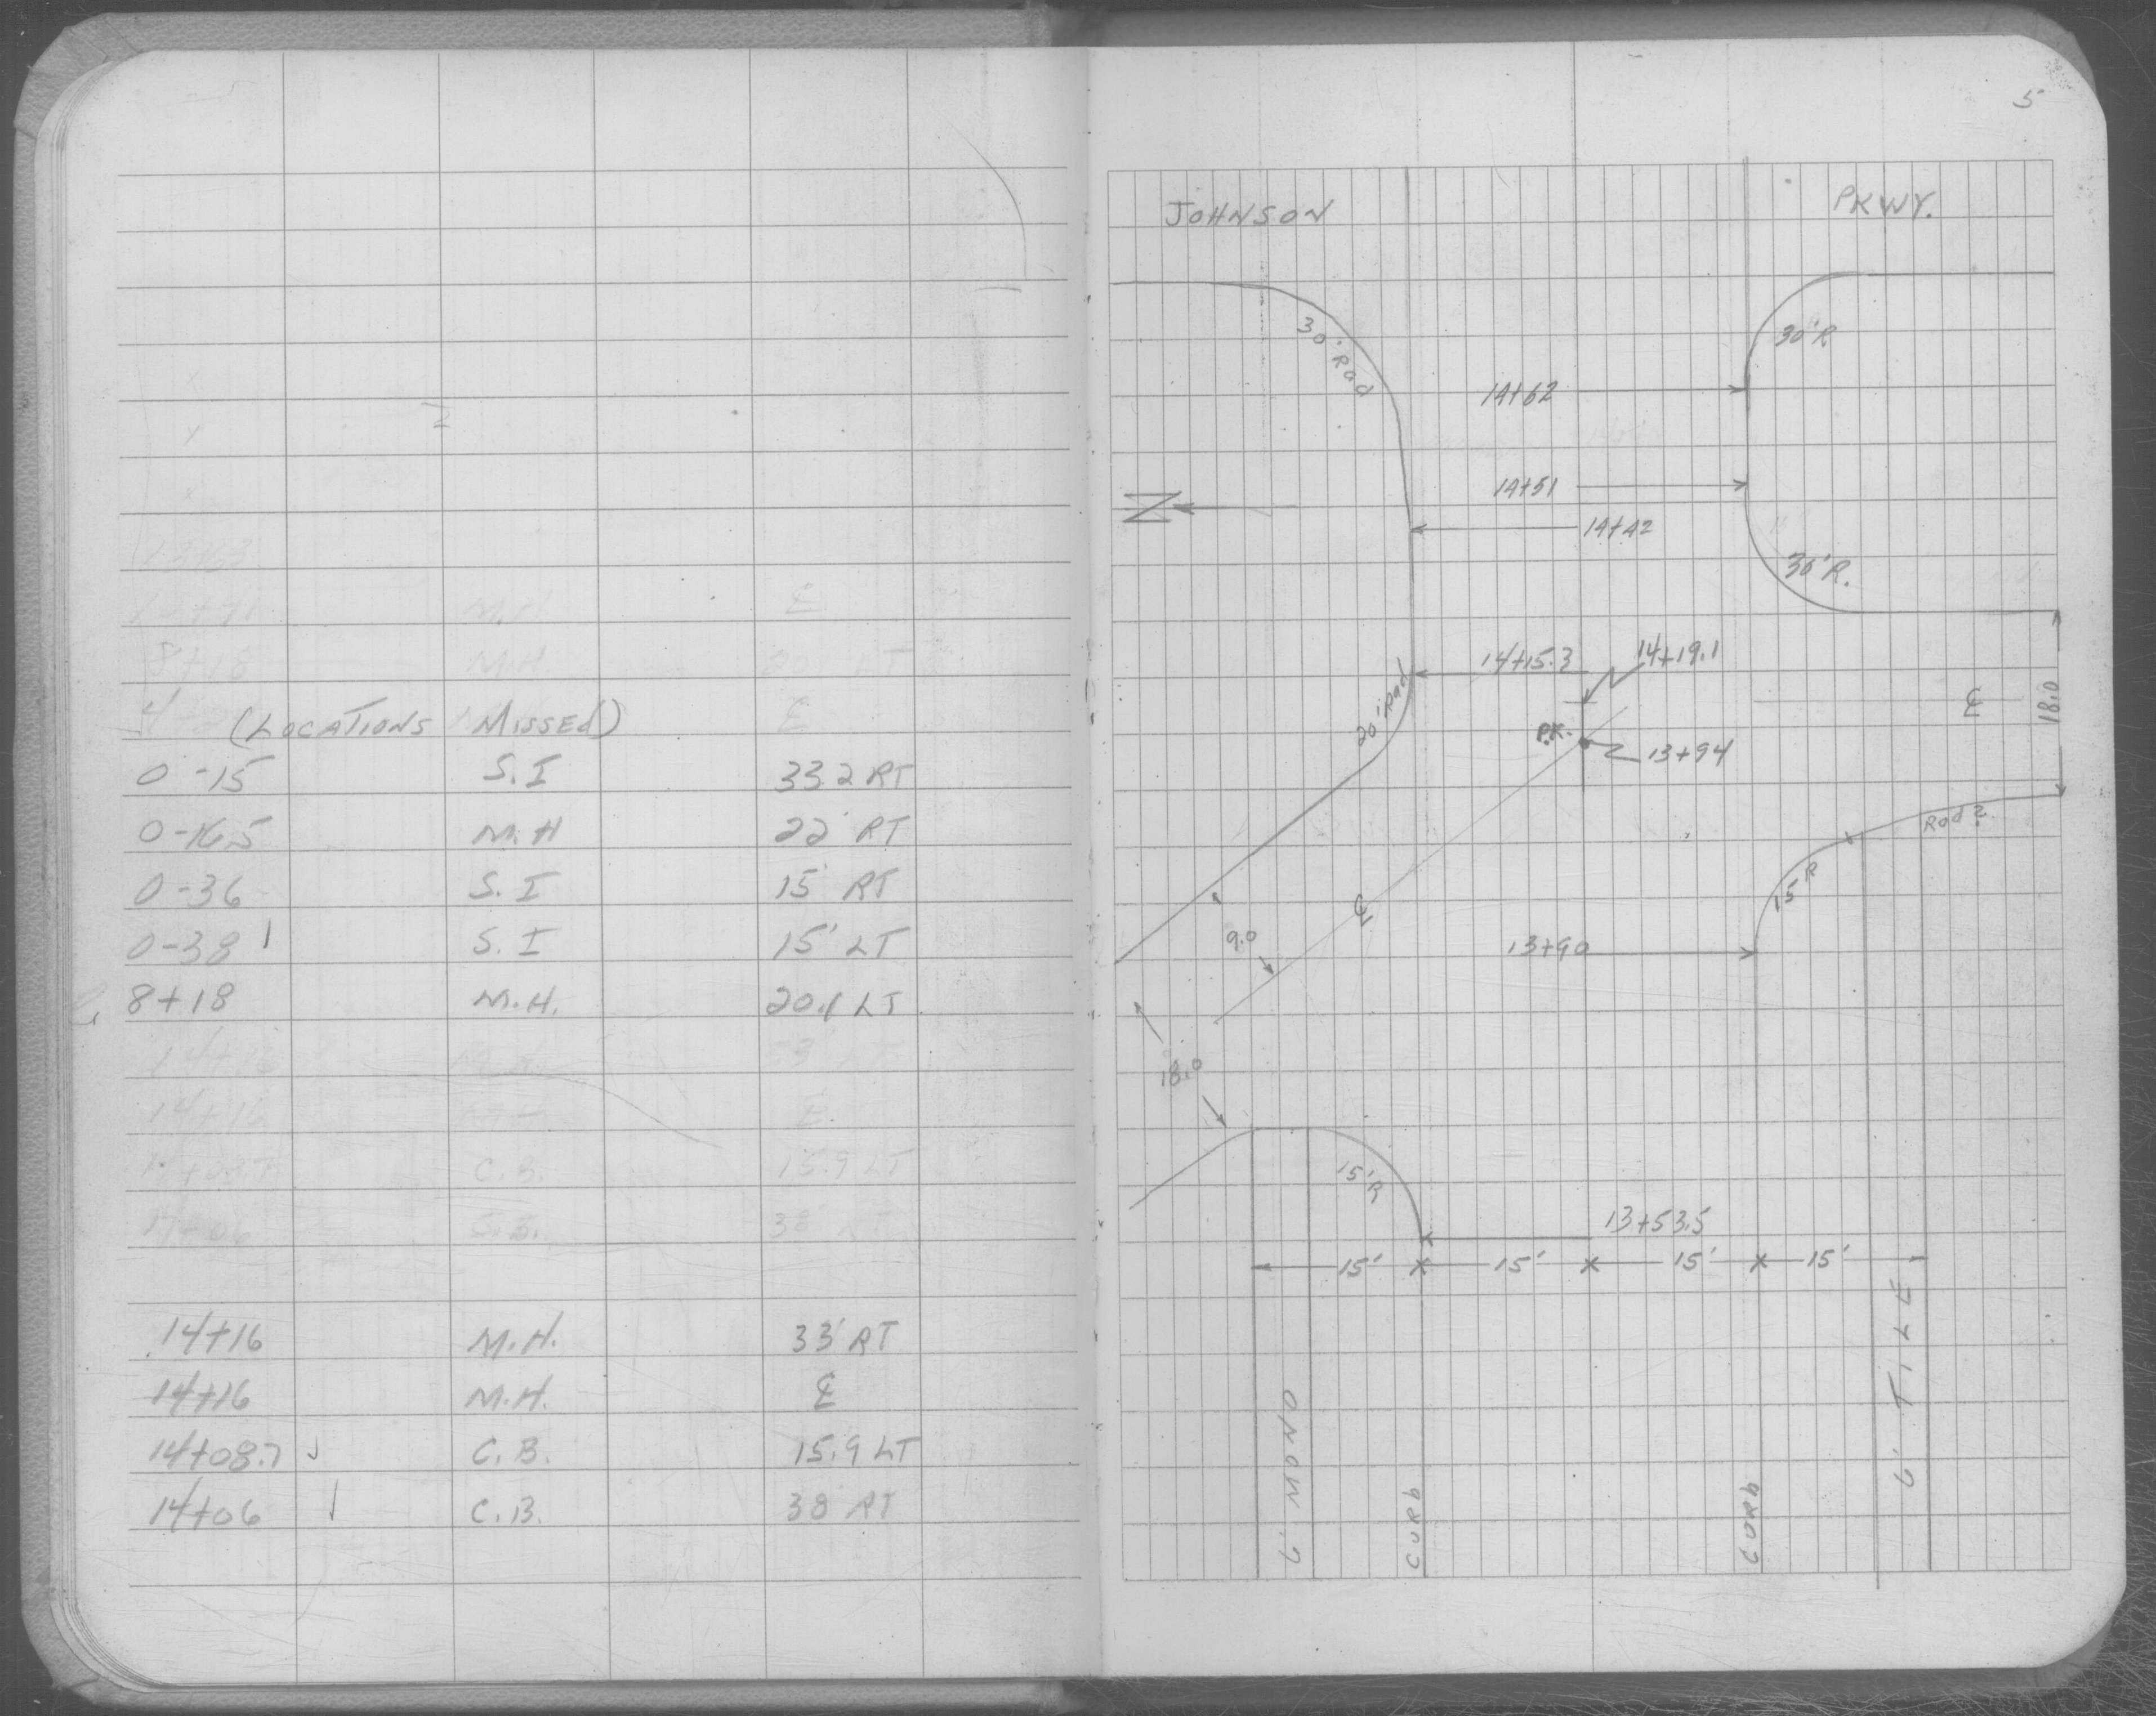 (LOCATIONS MISSEd)
0-15 S.I 33.2 RT
0-16.5 M.H 22' RT
0-36 S.I 15' RT
0-38 S.I 15' LT
8+18 M.H. 20.1 LT
14+16 M.H. 33' RT
14+16 M.H. ℄
14+08.7 C.B. 15.9 LT
14+06 C.B. 38' RT
5
JOHNSON PKWY.
30' Rad
30'R
14+62
14+51
N
14+42
30'R.
14+15.3
14+19.1
20' Rad
℄
18.0
P.K.
13+94
Rad ?
15' R
℄
9.0
13+90
18.0
15' R
13+53.5
15' 15' 15' 15'
6' MONO
CURb
CURb
6' TILE